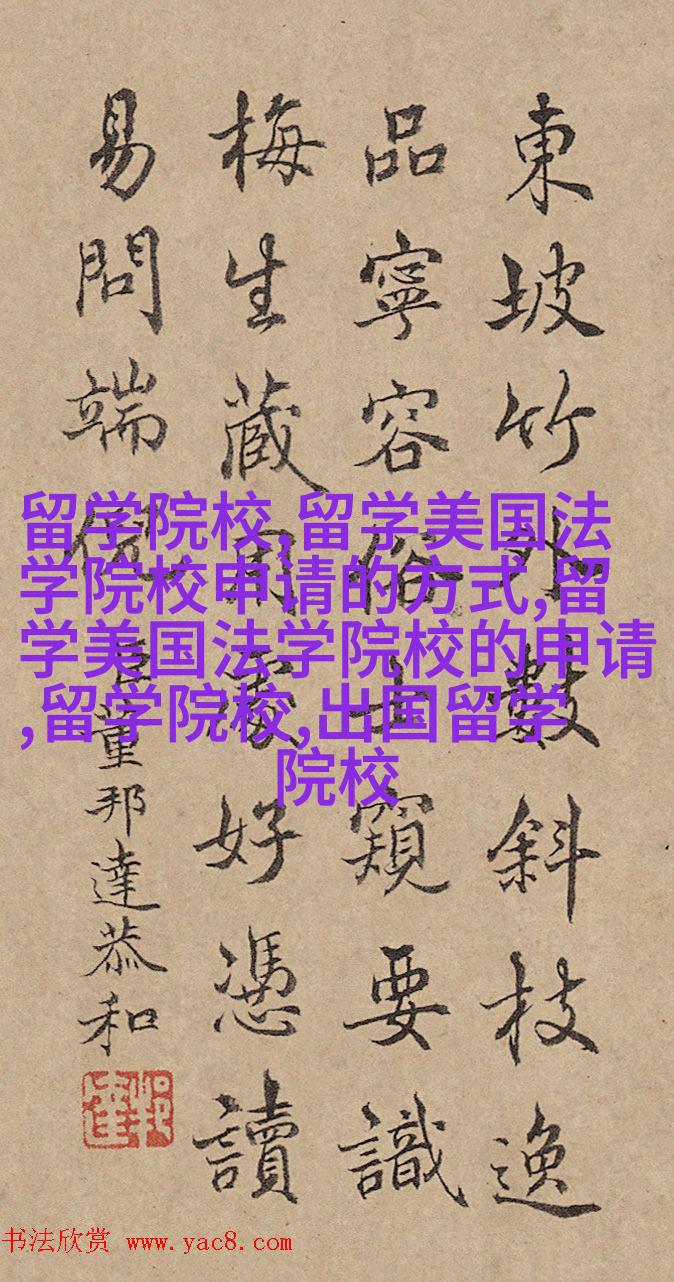 東坡竹外數斜枝逸
品寧容俗士窺要識
梅生蔵用處好憑讀
易問端倪臣董邦達恭和
邦達
留学院校,留学美国法
学院校申请的方式,留
学美国法学院校的申请
,留学院校,出国留学
院校
书法欣赏 www.yac8.com